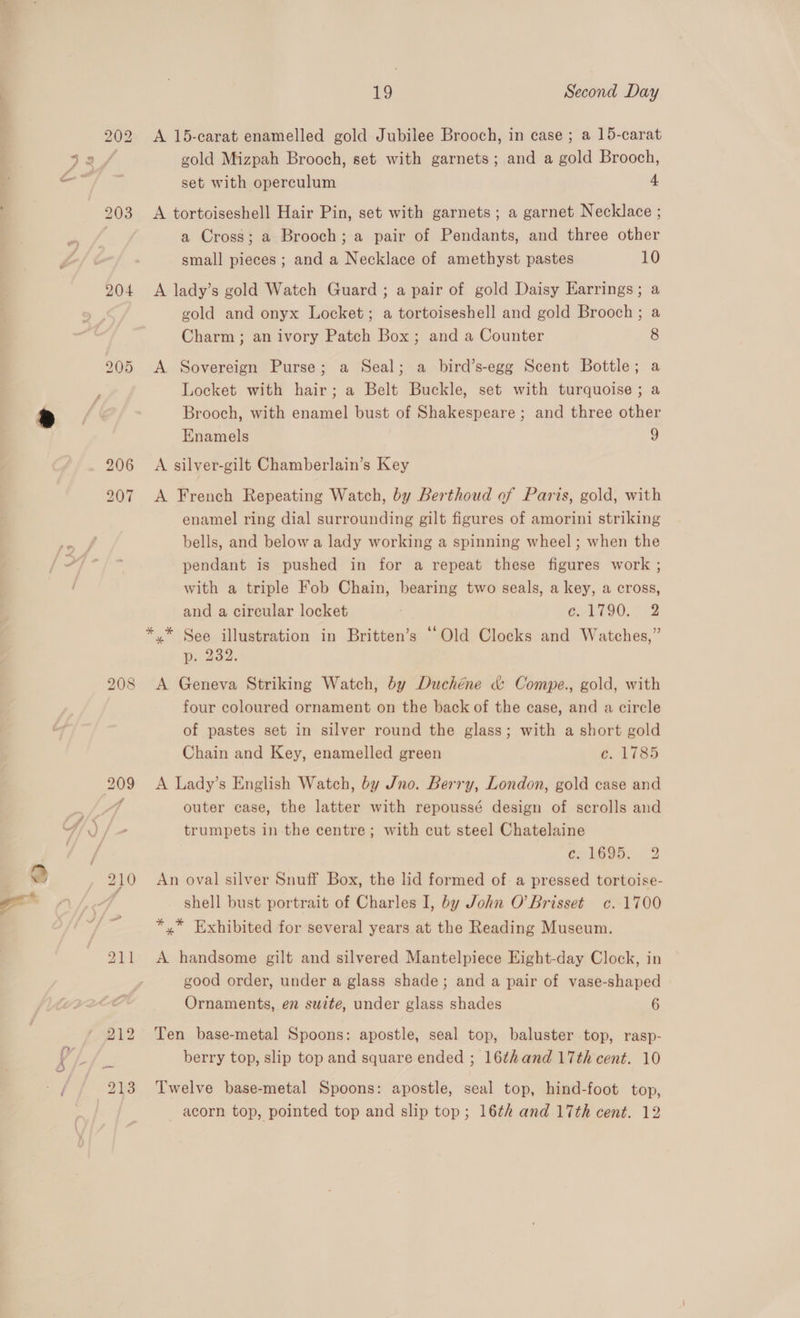 19 Second Day
202 A 15-carat enamelled gold Jubilee Brooch, in case ; a 15-carat
gold Mizpah Brooch, set with garnets ; and a gold Brooch,
set with operculum 4
203 A tortoiseshell Hair Pin, set with garnets ; a garnet Necklace ;
a Cross ; a Brooch ; a pair of Pendants, and three other
small pieces ; and a Necklace of amethyst pastes 10
204 A lady's gold Watch Guard ; a pair of gold Daisy Earrings ; a
gold and onyx Locket ; a tortoiseshell and gold Brooch ; a
Charm ; an ivory Patch Box ; and a Counter 8
205 A Sovereign Purse ; a Seal ; a bird's-egg Scent Bottle ; a
Locket with hair ; a Belt Buckle, set with turquoise ; a
Brooch, with enamel bust of Shakespeare ; and three other
Enamels 9
206 A silver-gilt Chamberlain's Key
207 A French Repeating Watch, by Berthoud of Paris, gold, with
enamel ring dial surrounding gilt figures of amorini striking
bells, and below a lady working a spinning wheel ; when the
pendant is pushed in for a repeat these figures work ;
with a triple Fob Chain, bearing two seals, a key, a cross,
and a circular locket c. 1790. 2
*** See illustration in Britten's "Old Clocks and Watches,"
p. 232.
208 A Geneva Striking Watch, by Duchéne & Compe., gold, with
four coloured ornament on the back of the case, and a circle
of pastes set in silver round the glass ; with a short gold
Chain and Key, enamelled green c. 1785
209 A Lady's English Watch, by Jno. Berry, London, gold case and
outer case, the latter with repoussé design of scrolls and
trumpets in the centre ; with cut steel Chatelaine
c. 1695. 2
210 An oval silver Snuff Box, the lid formed of a pressed tortoise-
shell bust portrait of Charles I, by John O'Brisset c. 1700
*** Exhibited for several years at the Reading Museum.
211 A handsome gilt and silvered Mantelpiece Eight-day Clock, in
good order, under a glass shade ; and a pair of vase-shaped
Ornaments, en suite, under glass shades 6
212 Ten base-metal Spoons: apostle, seal top, baluster top, rasp-
berry top, slip top and square ended ; 16th and 17th cent. 10
213 Twelve base-metal Spoons: apostle, seal top, hind-foot top,
acorn top, pointed top and slip top ; 16th and 17th cent. 12